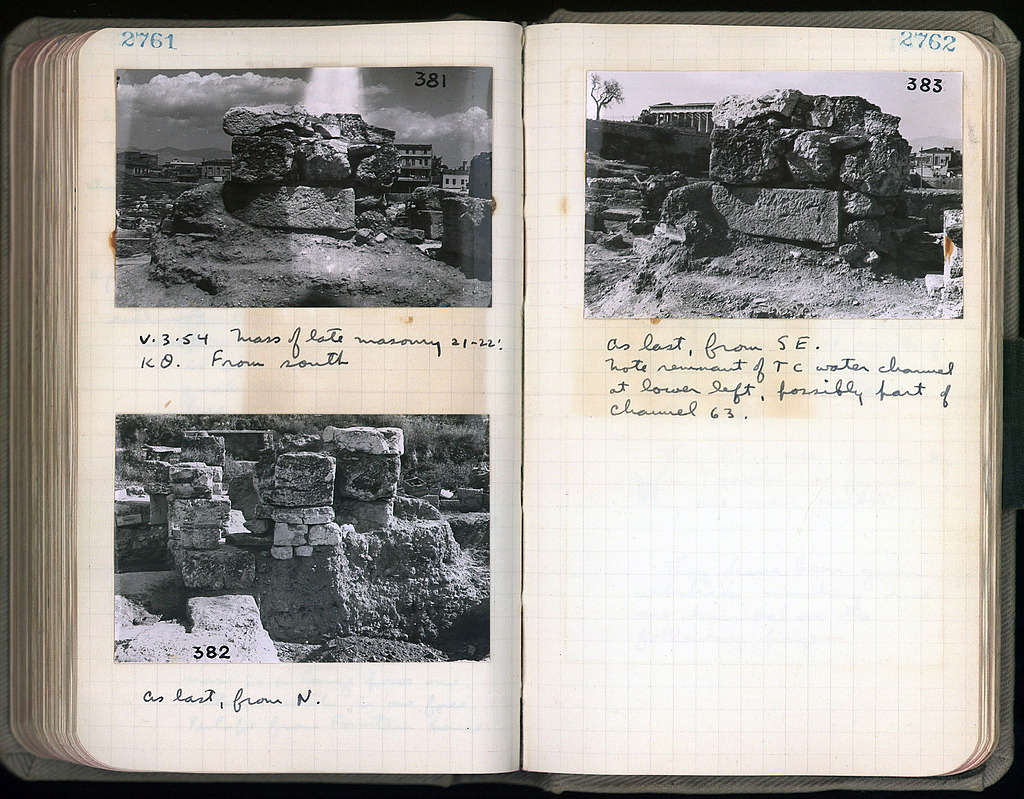 2761
381
V.3.54 Mass of late masonry 21-22:
KΘ. From south
382
as last, from N.
2762
383
as last, from SE.
Note remnant of TC water channel
at lower left, possibly part of
channel 63.